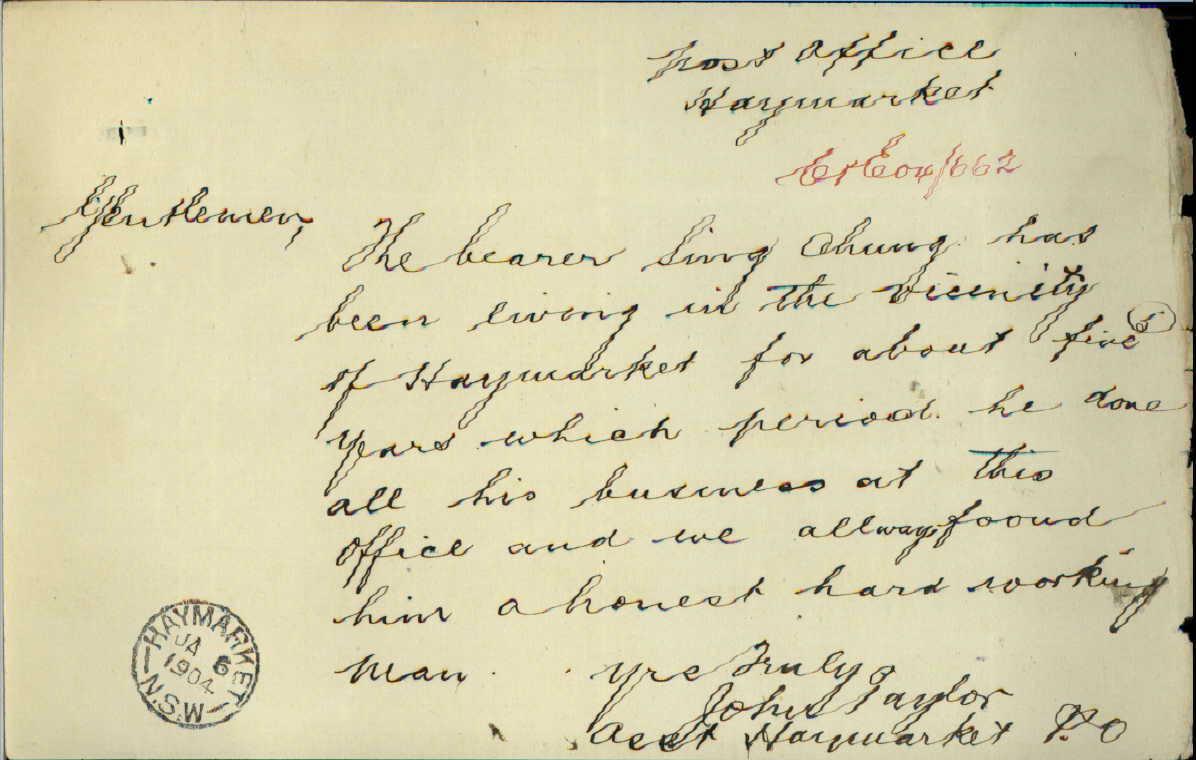 Post Office
Haymarket
C1 E04/662
Gentlemen,
The bearer Sing Chung has
been living in the vicenity
of Haymarket for about five (5)
years which period he done
all his business at this
office and we allways foound
him a honest hard working
man. yrs Truly
John Taylor
Asst Haymarket P.O
HAYMARKET
JA 6
1904
N.S.W